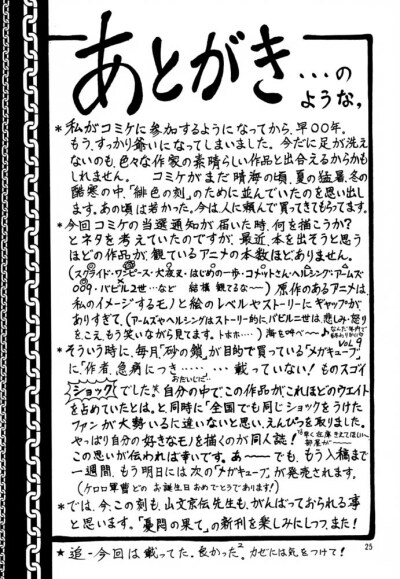 あとがき…の
ような。
*私がコミケに参加するようになってから、早〇〇年。
もう、すっかり爺いになってしまいました。今だに足が洗え
ないのも、色々な作家の素晴らしい作品と出合えるからかも
しれません。 コミケがまだ晴海の頃、夏の猛暑、冬の
酷寒の中、「緋色の刻」のために並んでいたのを思い出し
ます。あの頃は若かった。今は、人に頼んで買ってきてもらってます。
*今回コミケの当選通知が届いた時、何を描こうか?
とネタを考えていたのですが、最近、本を出そうと思う
ほどの作品が、観ているアニメの本数ほどありません。
(スクライド・ワンピース・犬夜叉・はじめの一歩・コメットさん・ヘルシング・アームズ
009・バビル2世…など 結構観てるな〜) 原作のあるアニメは、
私のイメージするモノと絵のレベルやストーリーにギャップが
ありすぎて、(アームズやヘルシングはストーリー的に、バビル二世は、悲しみ・怒り
をこえ、もう笑いながら見てます。トホホ…。) 海を呼べ〜♪
*そういう時に、毎月「砂の鎖」が目的で買っている「メガキューブ」VOL.9
に、「作者、急病につき……… …載っていない! ものスゴイ
おだいじに…
ショックでした。自分の中で、この作品がこれほどのウエイト
を占めていたとは。と、同時に「全国でも同じショックをうけた
ファンが大勢いるに違いないと思い、えんぴつを取りました。
やっぱり自分の好きなモノを描くのが同人誌!
この思いが伝われば幸いです。あ――でも、もう入稿まで
一週間、もう明日には次の「メガキューブ」が発売されます。
(ケロロ軍曹どの お誕生日おめでとうであります!)
*では、今、この刻も、山文京伝先生も、がんばっておられる事
と思います。「憂悶の果て」の新刊を楽しみにしつつ、また!
25
* 追-今回は載ってた。良かった2。カゼには気をつけて!